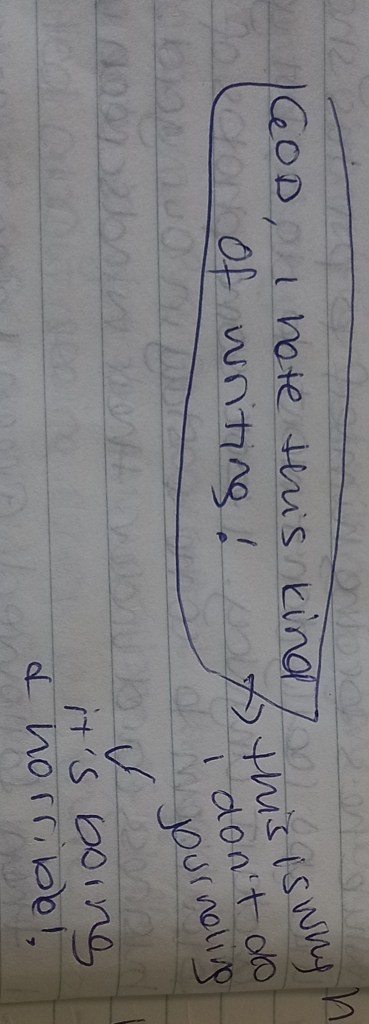 GOD, i hate this kind
of writing!
→ this is why
i don't do
journaling
it's boing
& horrible!